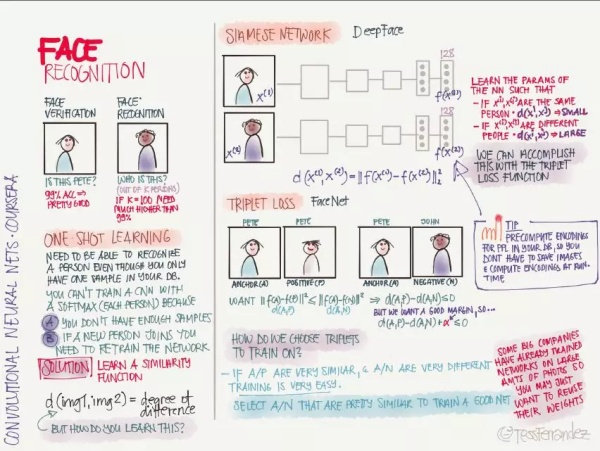 FACE
RECOGNITION
FACE
VERIFICATION
FACE
RECOGNITION
IS THIS PETE?
99% ACC ⇒
PRETTY GOOD
WHO IS THIS?
(OUT OF K PERSONS)
IF K=100 NEED
MUCH HIGHER THAN
99%
ONE SHOT LEARNING
NEED TO BE ABLE TO RECOGNIZE
A PERSON EVEN THOUGH YOU ONLY
HAVE ONE SAMPLE IN YOUR DB.
YOU CAN'T TRAIN A CNN WITH
A SOFTMAX (EACH PERSON) BECAUSE
A YOU DON'T HAVE ENOUGH SAMPLES
B IF A NEW PERSON JOINS YOU
NEED TO RETRAIN THE NETWORK
SOLUTION LEARN A SIMILARITY
FUNCTION
d(img1, img2) = degree of
difference
BUT HOW DO YOU LEARN THIS?
CONVOLUTIONAL NEURAL NETS · COURSERA
SIAMESE NETWORK DeepFace
x(1)
128
f(x(1))
x(2)
128
f(x(2))
d(x(1), x(2)) = || f(x(1)) - f(x(2)) ||²₂
LEARN THE PARAMS OF
THE NN SUCH THAT
- IF x(i), x(j) ARE THE SAME
PERSON · d(xi, xj) ⇒ SMALL
- IF x(i), x(j) ARE DIFFERENT
PEOPLE · d(xi, xj) ⇒ LARGE
WE CAN ACCOMPLISH
THIS WITH THE TRIPLET
LOSS FUNCTION
TRIPLET LOSS FaceNet
PETE PETE PETE JOHN
ANCHOR(A) POSITIVE(P) ANCHOR(A) NEGATIVE(N)
WANT ||f(A)-f(P)||² ≤ ||f(A)-f(N)||² ⇒ d(A,P)-d(A,N) ≤ 0
d(A,P) d(A,N)
BUT WE WANT A GOOD MARGIN, SO...
d(A,P)-d(A,N)+α ≤ 0
TIP
PRECOMPUTE ENCODINGS
FOR PPL IN YOUR DB, SO YOU
DONT HAVE TO SAVE IMAGES
& COMPUTE ENCODINGS AT RUN-
TIME
HOW DO WE CHOOSE TRIPLETS
TO TRAIN ON?
- IF A/P ARE VERY SIMILAR, & A/N ARE VERY DIFFERENT
TRAINING IS VERY EASY.
SELECT A/N THAT ARE PRETTY SIMILAR TO TRAIN A GOOD NET
SOME BIG COMPANIES
HAVE ALREADY TRAINED
NETWORKS ON LARGE
AMTS OF PHOTOS SO
YOU MAY JUST
WANT TO REUSE
THEIR WEIGHTS
@TessFerrandez